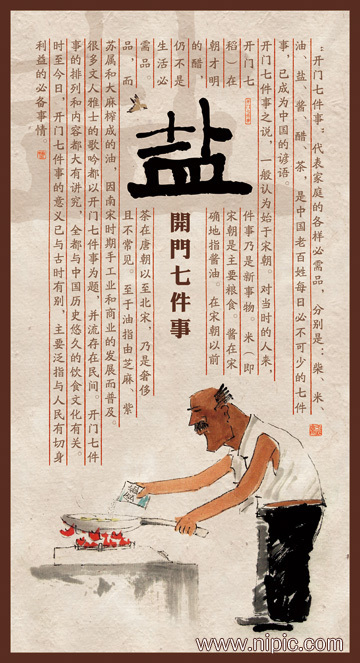 ：开门七件事：代表家庭的各样必需品，分别是：柴、米、
油、盐、酱、醋、茶，是中国老百姓每日必不可少的七件
事，已成为中国的谚语。
开门七件事之说，一般认为始于宋朝。对当时的人来，
开门七
件事乃是新事物。米（即
稻）在
宋朝是主要粮食。酱在宋
朝才明
确地指酱油。在宋朝以前
的醋，
仍不是
生活必
需品
茶在唐朝以至北宋，乃是奢侈
品，而
且不常见。至于油指由芝麻、紫
苏属和大麻榨成的油，因南宋时期手工业和商业的发展而普及。
很多文人雅士的歌吟都以开门七件事为题，并流存在民间。开门七件
事的排列和内容都大有讲究，全都与中国历史悠久的饮食文化有关。
时至今日，开门七件事的意义已与古时有别，主要泛指与人民有切身
利益的必备事情。
盐
開門七件事
www.nipic.com